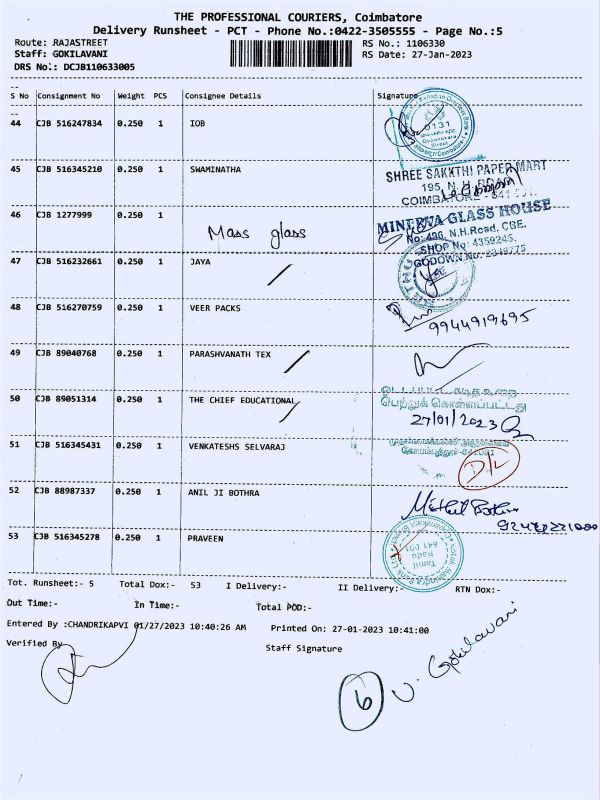 THE PROFESSIONAL COURIERS, Coimbatore
Delivery Runsheet - PCT - Phone No.:0422-3505555 - Page No.:5
Route: RAJASTREET RS No.: 1106330
Staff: GOKILAVANI RS Date: 27-Jan-2023
DRS No.: DCJB110633005
S No Consignment No Weight PCS Consignee Details Signature
44 CJB 516247834 0.250 1 IOB
0131
45 CJB 516345210 0.250 1 SWAMINATHA
SHREE SAKXTHI PAPER MART
195, N. H. ROAD
COIMBATORE - 641 001.
46 CJB 1277999 0.250 1
Mass glass
MINERVA GLASS HOUSE
No: 496, N.H.Road, CBE.
SHOP No: 4359245,
GODOWN No:
47 CJB 516232661 0.250 1 JAYA
48 CJB 516270759 0.250 1 VEER PACKS
9944919695
49 CJB 89040768 0.250 1 PARASHVANATH TEX
50 CJB 89051314 0.250 1 THE CHIEF EDUCATIONAL
பெற்றுக் கொள்ளப்பட்டது
27/01/2023
51 CJB 516345431 0.250 1 VENKATESHS SELVARAJ
D/L
52 CJB 88987337 0.250 1 ANIL JI BOTHRA
53 CJB 516345278 0.250 1 PRAVEEN
Tamil
Nadu
641 001
Tot. Runsheet:- 5 Total Dox:- 53 I Delivery:- II Delivery:- RTN Dox:-
Out Time:- In Time:- Total POD:-
Entered By :CHANDRIKAPVI 01/27/2023 10:40:26 AM Printed On: 27-01-2023 10:41:00
Verified By Staff Signature
6
V. Gokilavani